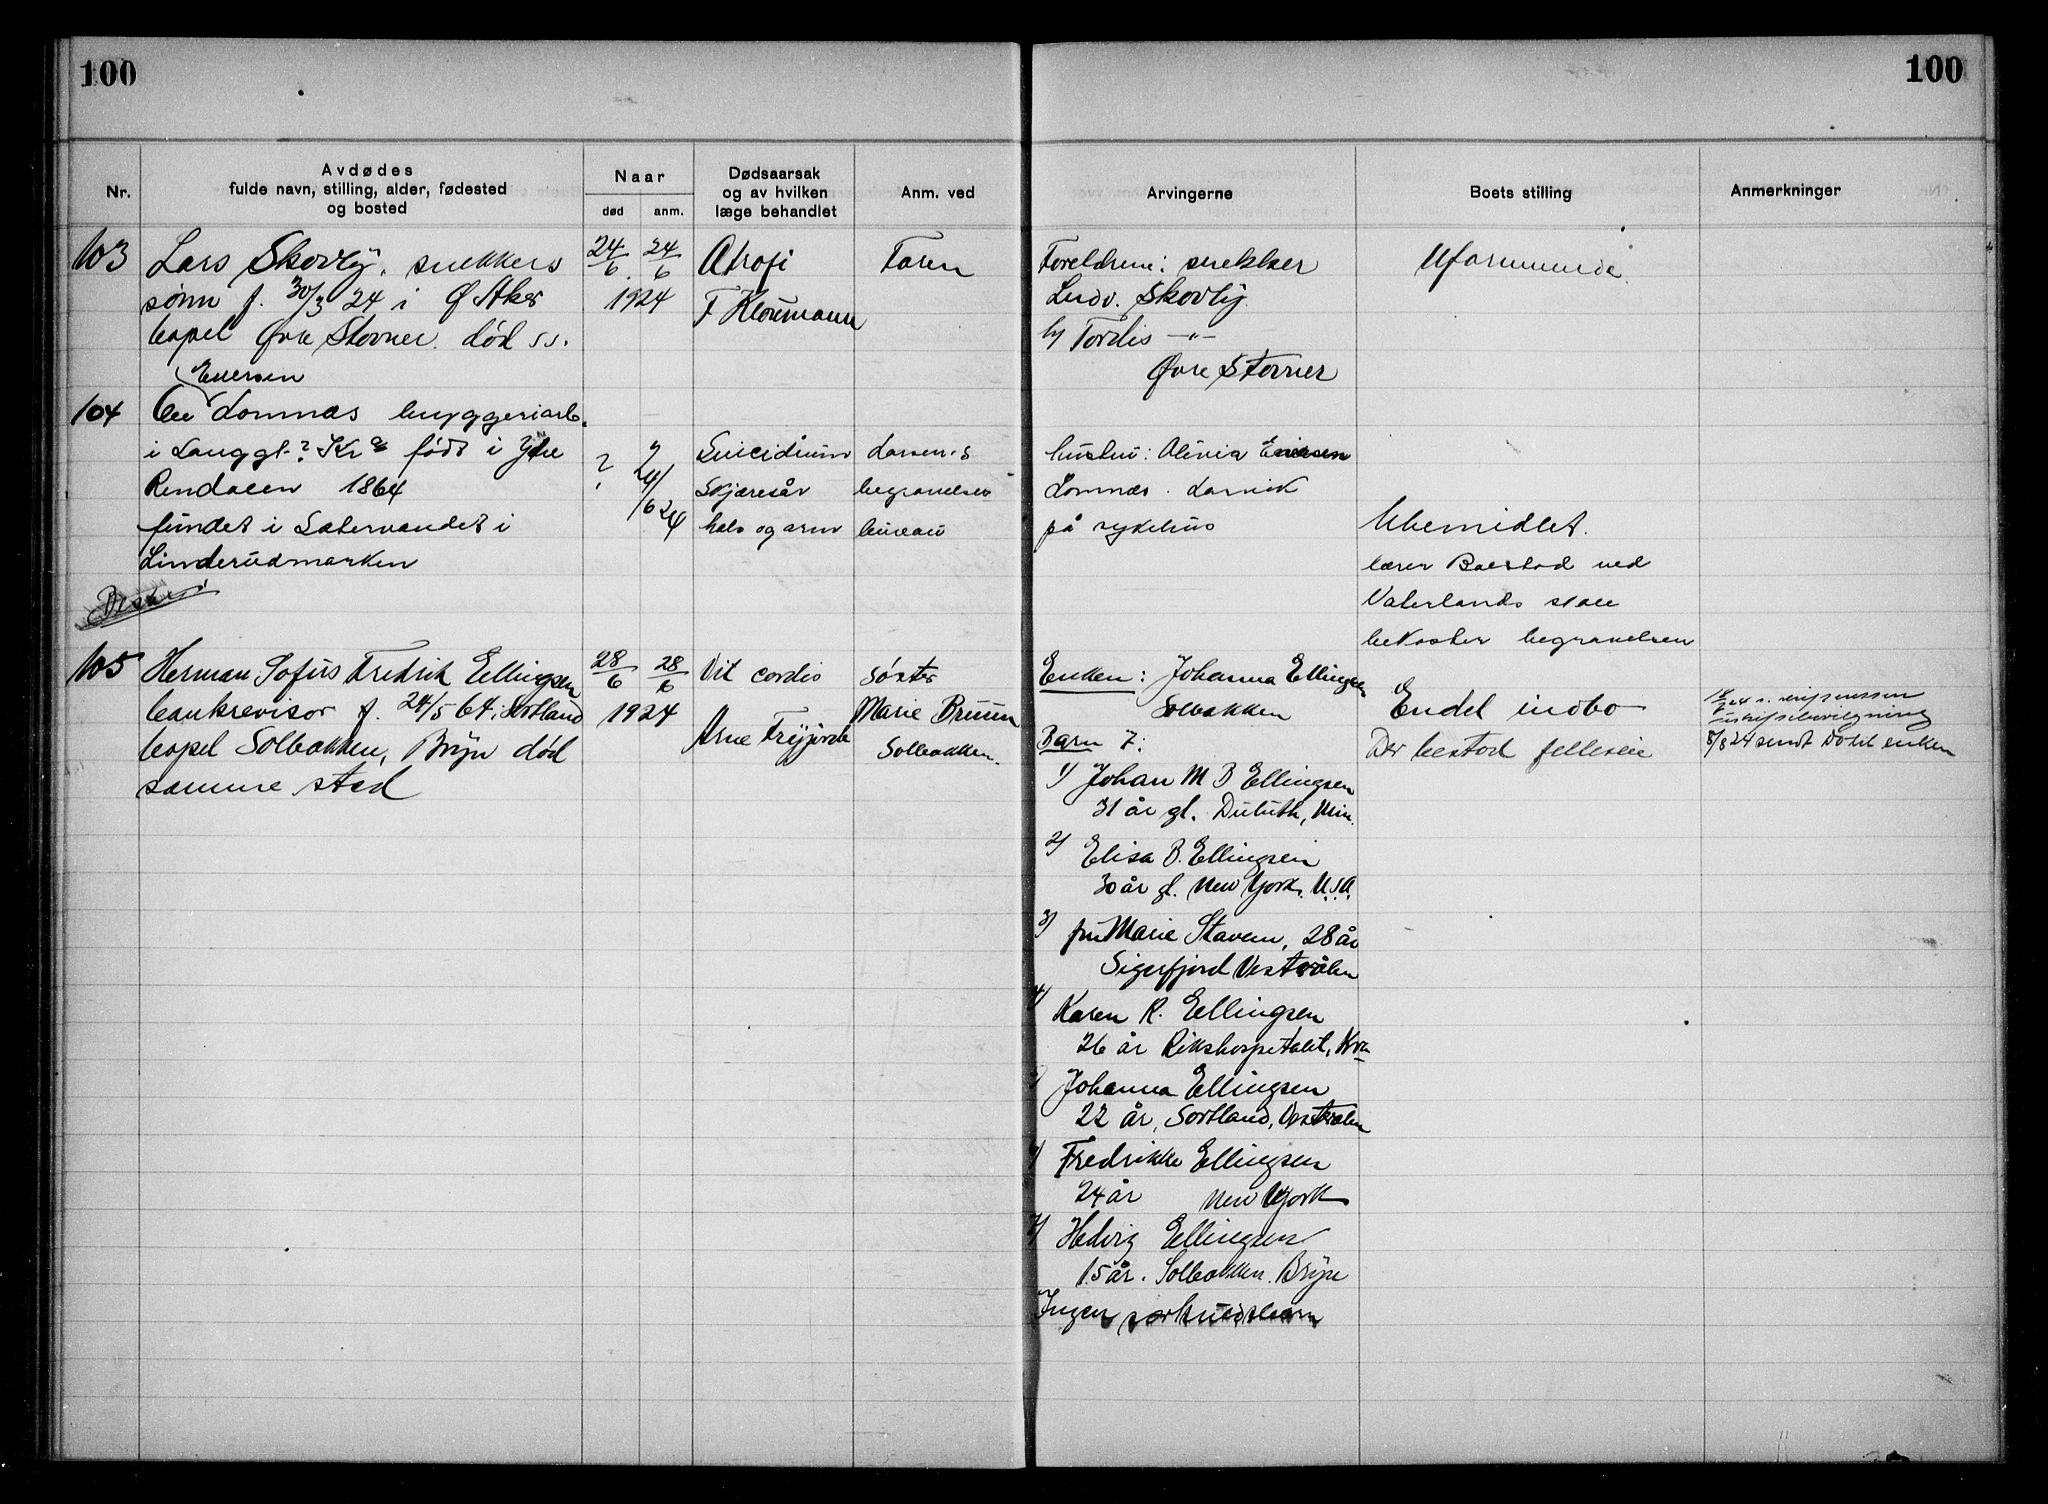 100
100
Nr.
Avdødes
fulde navn, stilling, alder, fødested
og bosted
Naar
død
anm.
Dødsaarsak
og av hvilken
læge behandlet
Anm. ved
Arvingerne
Boets stilling
Anmerkninger
103
Lars Skovly, snekkers
sønn f. 30/3 24 i Ø Aker
bopel Øvre Stovner. død ss.
24/6
24/6
1924
Atrofi
F Kloumann
Faren
Foreldrene: snekker
Ludv. Skovly
Tordis -"-
Øvre Stovner
Uformuende
104
Ole Lomnæs bryggeriarb.
i Langgt.? Kra født i Ytre
Rendalen 1864
fundet i Latervandet i
Linderudmarken
?
24/6 24
Suicidium
Skjæresår
hals og arm
Larsens
begravelses
bureau
hustru: Olivia
Lomnæs. Larvik
på sykehus
Ubemidlet.
lærer Boestad ved
Vaterlands skole
bekoster begravelsen
105
Herman Sofus Fredrik Ellingsen
bankrevisor f. 24/5 64 i Sortland
bopel Solbakken, Bryn død
samme sted
28/6
28/6
1924
Vit cordis
Arne
søster
Marie Bruun
Solbakken.
Enken: Johanna Ellingsen
Solbakken
Barn 7:
1) Johan M B Ellingsen
31 år gl. Duluth, Min.
2) Elisa B. Ellingsen
30 år gl. New York. U.S.A.
3) fru Marie Stavem, 28 år
Sigerfjord Vesterålen
4)
Karen R. Ellingsen
26 år Rikshospitalet, Kra
Johanna Ellingsen
22 år, Sortland, Vesterålen
Fredrikke Ellingsen
24 år New York
7) Hedvig Ellingsen
15 år. Solbakken. Bryn
Ingen særkuldsbarn
Endel indbo
Der bestod felleseie
8/8 24 sendt Do til enken